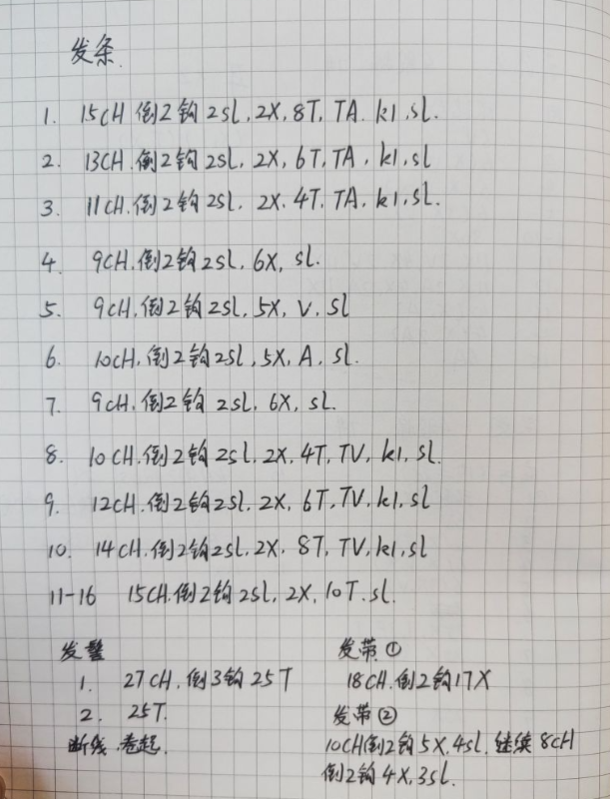 发条.
1. 15CH 倒2钩 2sl, 2X, 8T, TA. k1, sl.
2. 13CH. 倒2钩 2sl, 2X, 6T, TA, k1, sl
3. 11CH. 倒2钩 2sl. 2X. 4T, TA, k1, sl.
4. 9CH. 倒2钩 2sl. 6X, sl.
5. 9CH. 倒2钩 2sl, 5X, V. sl
6. 10CH, 倒2钩 2sl, 5X, A. sl.
7. 9CH, 倒2钩 2sl. 6X, sl.
8. 10CH. 倒2钩 2sl, 2X, 4T, TV, k1, sl.
9. 12CH. 倒2钩 2sl. 2X, 6T, TV, k1, sl
10. 14CH. 倒2钩 2sl, 2X. 8T, TV, k1, sl
11-16 15CH. 倒2钩 2sl, 2X, 10T. sl.
发髻
1. 27CH, 倒3钩 25T
2. 25T.
断线. 卷起.
发带①
18CH. 倒2钩17X
发带②
10CH倒2钩 5X, 4sl. 继续 8CH
倒2钩 4X, 3sl.